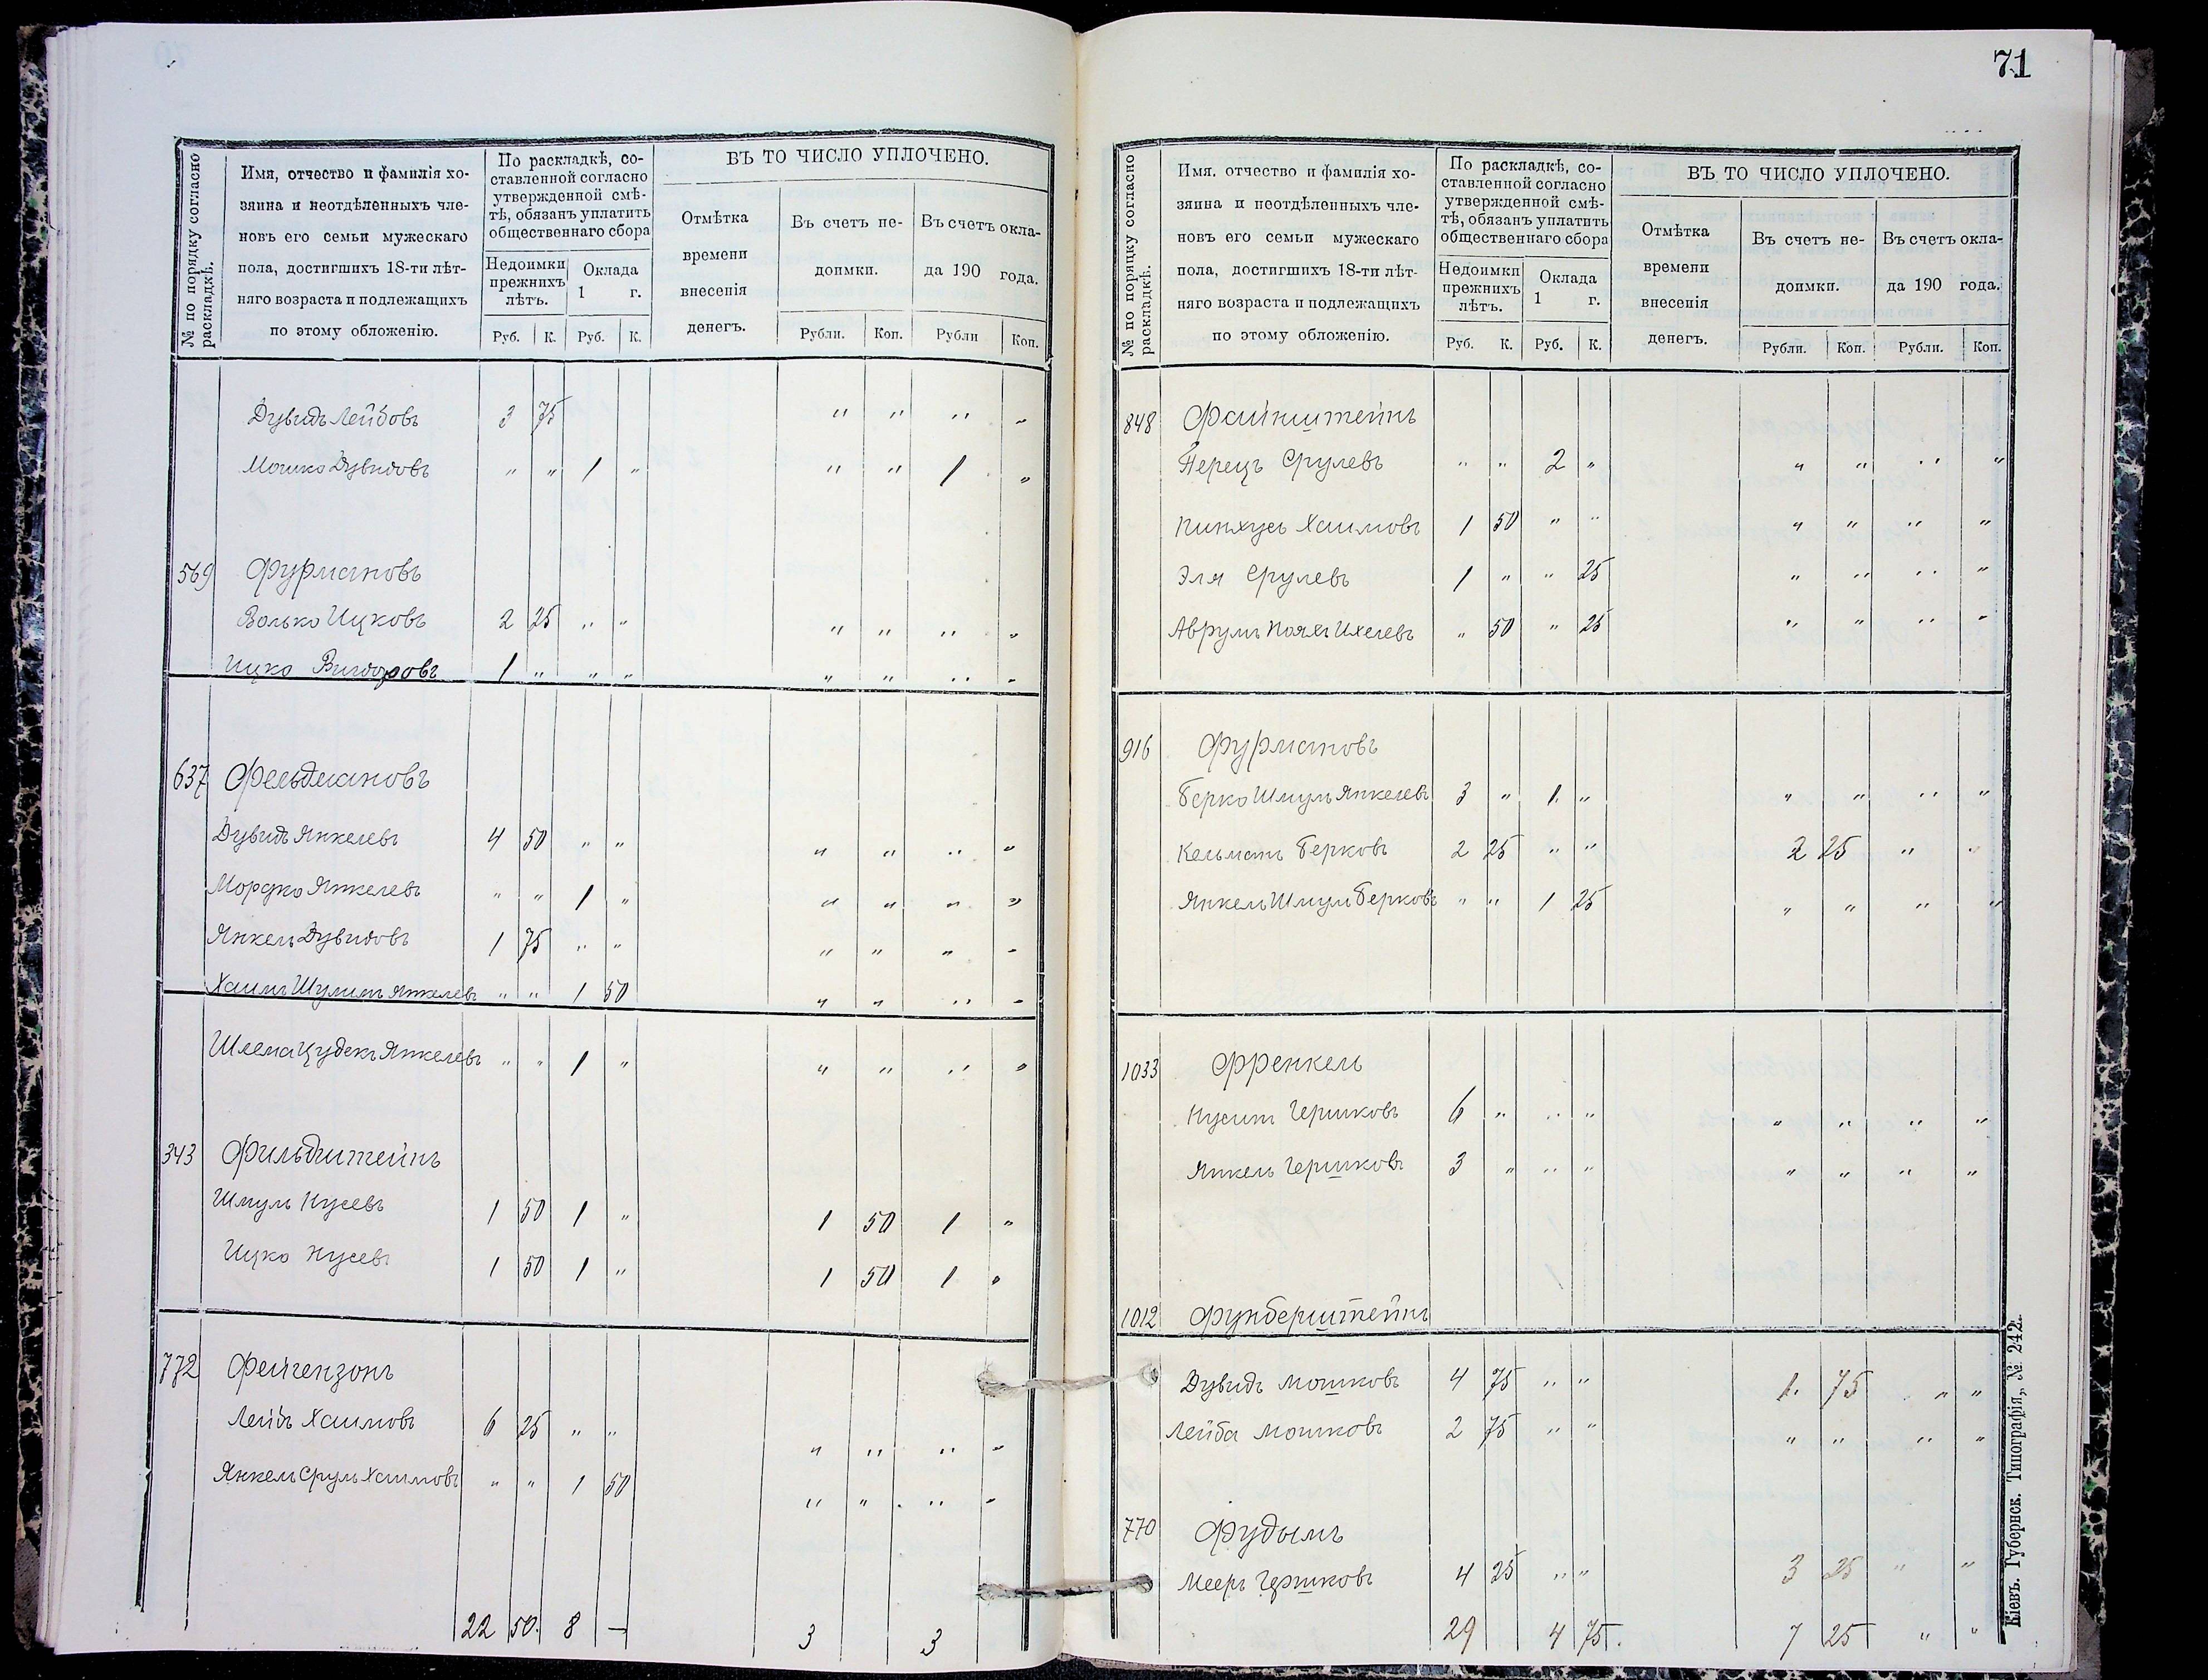 71
№ по порядку согласно раскладкѣ.
Имя, отчество и фамилія хо-
зяина и неотдѣленныхъ чле-
новъ его семьи мужескаго
пола, достигшихъ 18-ти лѣт-
няго возраста и подлежащихъ
по этому обложенію.
По раскладкѣ, со-
ставленной согласно
утвержденной смѣ-
тѣ, обязанъ уплатить
общественнаго сбора
Недоимки прежнихъ лѣтъ.
Оклада 1 г.
Руб. К. Руб. К.
ВЪ ТО ЧИСЛО УПЛОЧЕНО.
Отмѣтка времени внесенія денегъ.
Въ счетъ не-
доимки.
Въ счетъ окла-
да 190 года.
Рубли. Коп. Рубли Коп.
Дувидъ Лейбовъ 3 75 " " " "
Мошко Дувидовъ " " 1 " " " 1 "
569 Фурмановъ
Волько Ицковъ 2 25 " " " " " "
Ицко Вигдоровъ 1 " " " " " " "
637 Фельдмановъ
Дувидъ Янкелевъ 4 50 " " " " " "
Мордко Янкелевъ " " 1 " " " " "
Янкель Дувидовъ 1 75 " " " " " "
Хаимъ Шулимъ Янкелевъ " " 1 50 " " " "
Шлема Цудекъ Янкелевъ " " 1 " " " " "
343 Фильдштейнъ
Шмуль Нусевъ 1 50 1 " 1 50 1 "
Ицко Нусевъ 1 50 1 " 1 50 1 "
772 Фейгензонъ
Лейбъ Хаимовъ 6 25 " " " " " "
Янкель Сруль Хаимовъ " " 1 50 " " " "
22 50. 8 — 3 3
№ по порядку согласно раскладкѣ.
Имя. отчество и фамилія хо-
зяина и неотдѣленныхъ чле-
новъ его семьи мужескаго
пола, достигшихъ 18-ти лѣт-
няго возраста и подлежащихъ
по этому обложенію.
По раскладкѣ, со-
ставленной согласно
утвержденной смѣ-
тѣ, обязанъ уплатить
общественнаго сбора
Недоимки прежнихъ лѣтъ.
Оклада 1 г.
Руб. К. Руб. К.
ВЪ ТО ЧИСЛО УПЛОЧЕНО.
Отмѣтка времени внесенія денегъ.
Въ счетъ не-
доимки.
Въ счетъ окла-
да 190 года.
Рубли. Коп. Рубли. Коп.
848 Файнштейнъ
Перецъ Срулевъ " " 2 " " " " "
Пинхусъ Хаимовъ 1 50 " " " " " "
Эля Срулевъ 1 " " 25 " " " "
Аврумъ Ноахъ Ихелевъ " 50 " 25 " " " "
916 Фурмановъ
Берко Шмуль Янкелевъ 3 " 1. " " " " "
Кельманъ Берковъ 2 25 " " 2 25 " "
Янкель Шмуль Берковъ " " 1 25 " " " "
1033 Френкель
Нусинъ Гершковъ 6 " " " " " " "
Янкель Гершковъ 3 " " " " " " "
1012 Фунберштейнъ
Дувидъ Мошковъ 4 75 " " 1. 75 " "
Лейба Мошковъ 2 75 " " " " " "
770 Фудымъ
Мееръ Гершковъ 4 25 " " 3 25 " "
29 4 75. 7 25 " "
Кіевъ. Губернск. Типографія, № 242.